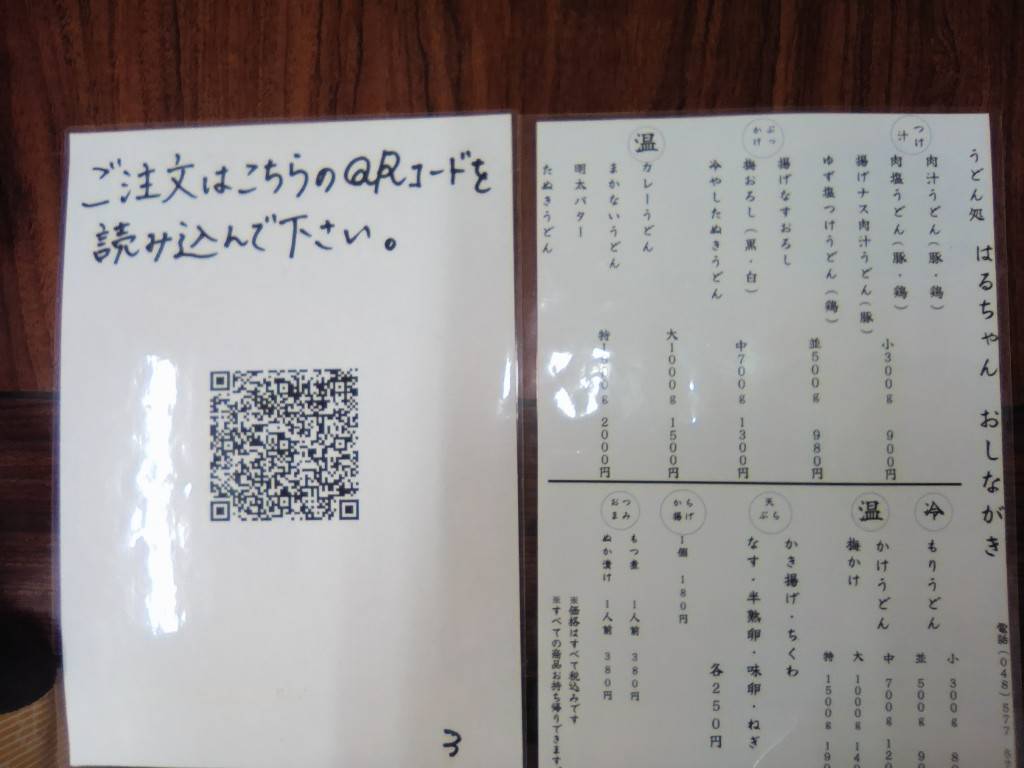 ご注文はこちらのQRコードを
読み込んで下さい。
3
うどん処 はるちゃん おしながき
つけ汁
肉汁うどん(豚・鶏)
肉塩うどん(豚・鶏)
揚げナス肉汁うどん(豚)
ゆず塩つけうどん(鶏)
ぶっかけ
揚げなすおろし
梅おろし(黒・白)
冷やしたぬきうどん
温
カレーうどん
まかないうどん
明太バター
たぬきうどん
小300g 900円
並500g 980円
中700g 1300円
大1000g 1500円
特1500g 2000円
冷
もりうどん
温
かけうどん
梅かけ
小 300g
並 500g
中 700g
大 1000g
特 1500g
天ぷら
かき揚げ・ちくわ
なす・半熟卵・味卵・ねぎ
各250円
ちくわげ揚
1個 180円
おつまみ
もつ煮 1人前 380円
ぬか漬け 1人前 380円
※価格はすべて税込みです
※すべての商品お持ち帰りできます。
電話(048)577